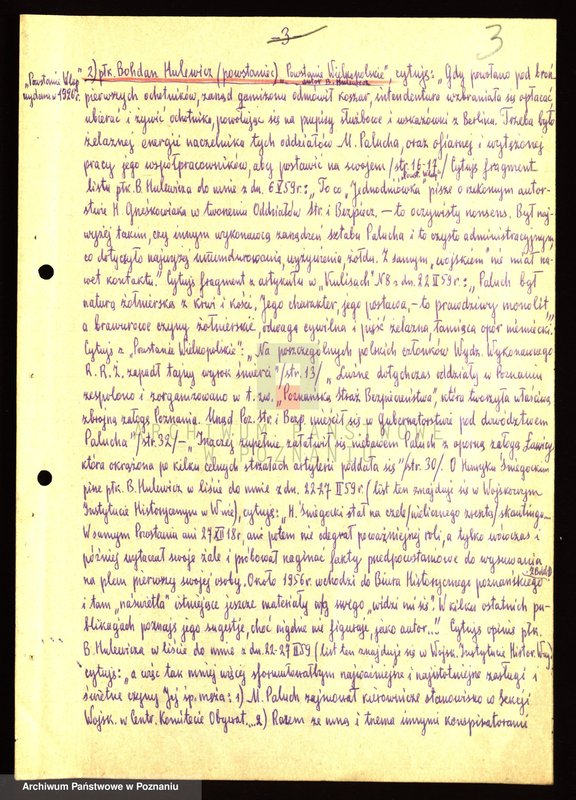 3
3
„Powstanie Wlkp."
wydana w 1920 r.
2) płk. Bohdan Hulewicz (powstaniec) „Powstanie Wielkopolskie", cytuję: „Gdy powołano pod broń
autor B. Hulewicz
pierwszych ochotników, zarząd garnizonu odmówił koszar, intendentura wzbraniała się opłacać
ubierać i żywić ochotnika, powołując się na przepisy służbowe i wskazówki z Berlina. Trzeba było
żelaznej energii naczelnika tych oddziałów M. Palucha, oraz ofiarnej i wytężonej
pracy jego współpracowników, aby postawić na swojem /str. 16-17/ Cytuję fragment
listu płk. B. Hulewicza do mnie z dn. 6 V 59 r.: „To co „Jednodniówka pisze o rzekomym autor-
stwie H. Gnieśkowiaka w tworzeniu Oddziałów Str. i Bezpiecz. – to oczywisty nonsens. Był naj-
wyżej takim, czy innym wykonawcą zarządzeń sztabu Palucha i to czysto administracyjnym,
co dotyczyło najwyżej umundurowania, wyżywienia żołdu. Z samym „wojskiem" nie miał na-
wet kontaktu." Cytuję fragment z artykułu w „Kulisach" N 8 z dn. 22 II 59 r.: „Paluch był
naturą żołnierską z krwi i kości. Jego charakter, jego postawa, – to prawdziwy monolit,
a brawurowe czyny żołnierskie, odwaga cywilna i pięść żelazna, łamiąca opór niemiecki."
Cytuję z „Powstanie Wielkopolskie": „Na poszczególnych polskich członków Wydz. Wykonawczego
R.R.Ż. zapadł tajny wyrok śmierci" /str. 13/ „Luźne dotychczas oddziały w Poznaniu
zespolono i zorganizowano w t. zw. „Poznańską Straż Bezpieczeństwa", która tworzyła właściwą
zbrojną załogę Poznania. Urząd Poz. Str. i Bezp. mieścił się w Gubernatorstwie pod dowództwem
Palucha" /str. 32/ – „Inaczej zupełnie załatwił się niebawem Paluch z oporną załogą Ławicy,
która okrążona po kilku celnych strzałach artylerii poddała się" /str. 30/. O Henryku Śniegockim
pisze płk. B. Hulewicz w liście do mnie z dn. 22-27 II 59 r. (list ten znajduje się w Wojskowym
Instytucie Historycznym w W-wie), cytuję: „H. Śniegocki stał na czele /nielicznego zresztą/ skautingu.
W samym Powstaniu ani 27 XII 18 r. ani potem nie odegrał poważniejszej roli, a tylko wówczas i
później wytaczał swoje żale i próbował naginać fakty przedpowstaniowe do wysuwania
na plan pierwszy swojej osoby. Około 1956 r. wchodzi do Biura Historycznego poznańskiego
i tam „naświetla" istniejące jeszcze materiały wg swego „widzi mi się". W kilku ostatnich pu-
blikacjach poznaję jego sugestje, choć nigdzie nie figuruje, jako autor..." Cytuję opinię płk.
B. Hulewicza w liście do mnie z dn. 22-27 II 59 (list ten znajduje się w Wojsk. Instytucie Histor. W-wa)
cytuję: „a więc tak mniej więcej sformułowałbym najważniejsze i najistotniejsze zasługi i
świetne czyny Jej śp. męża: 1) M. Paluch zajmował kierownicze stanowisko w Sekcji
Wojsk. w Centr. Komitecie Obywat. ... 2) Razem ze mną i trzema innymi konspiratorami
ARCHIWUM PAŃSTWOWE
W POZNANIU
Archiwum Państwowe w Poznaniu